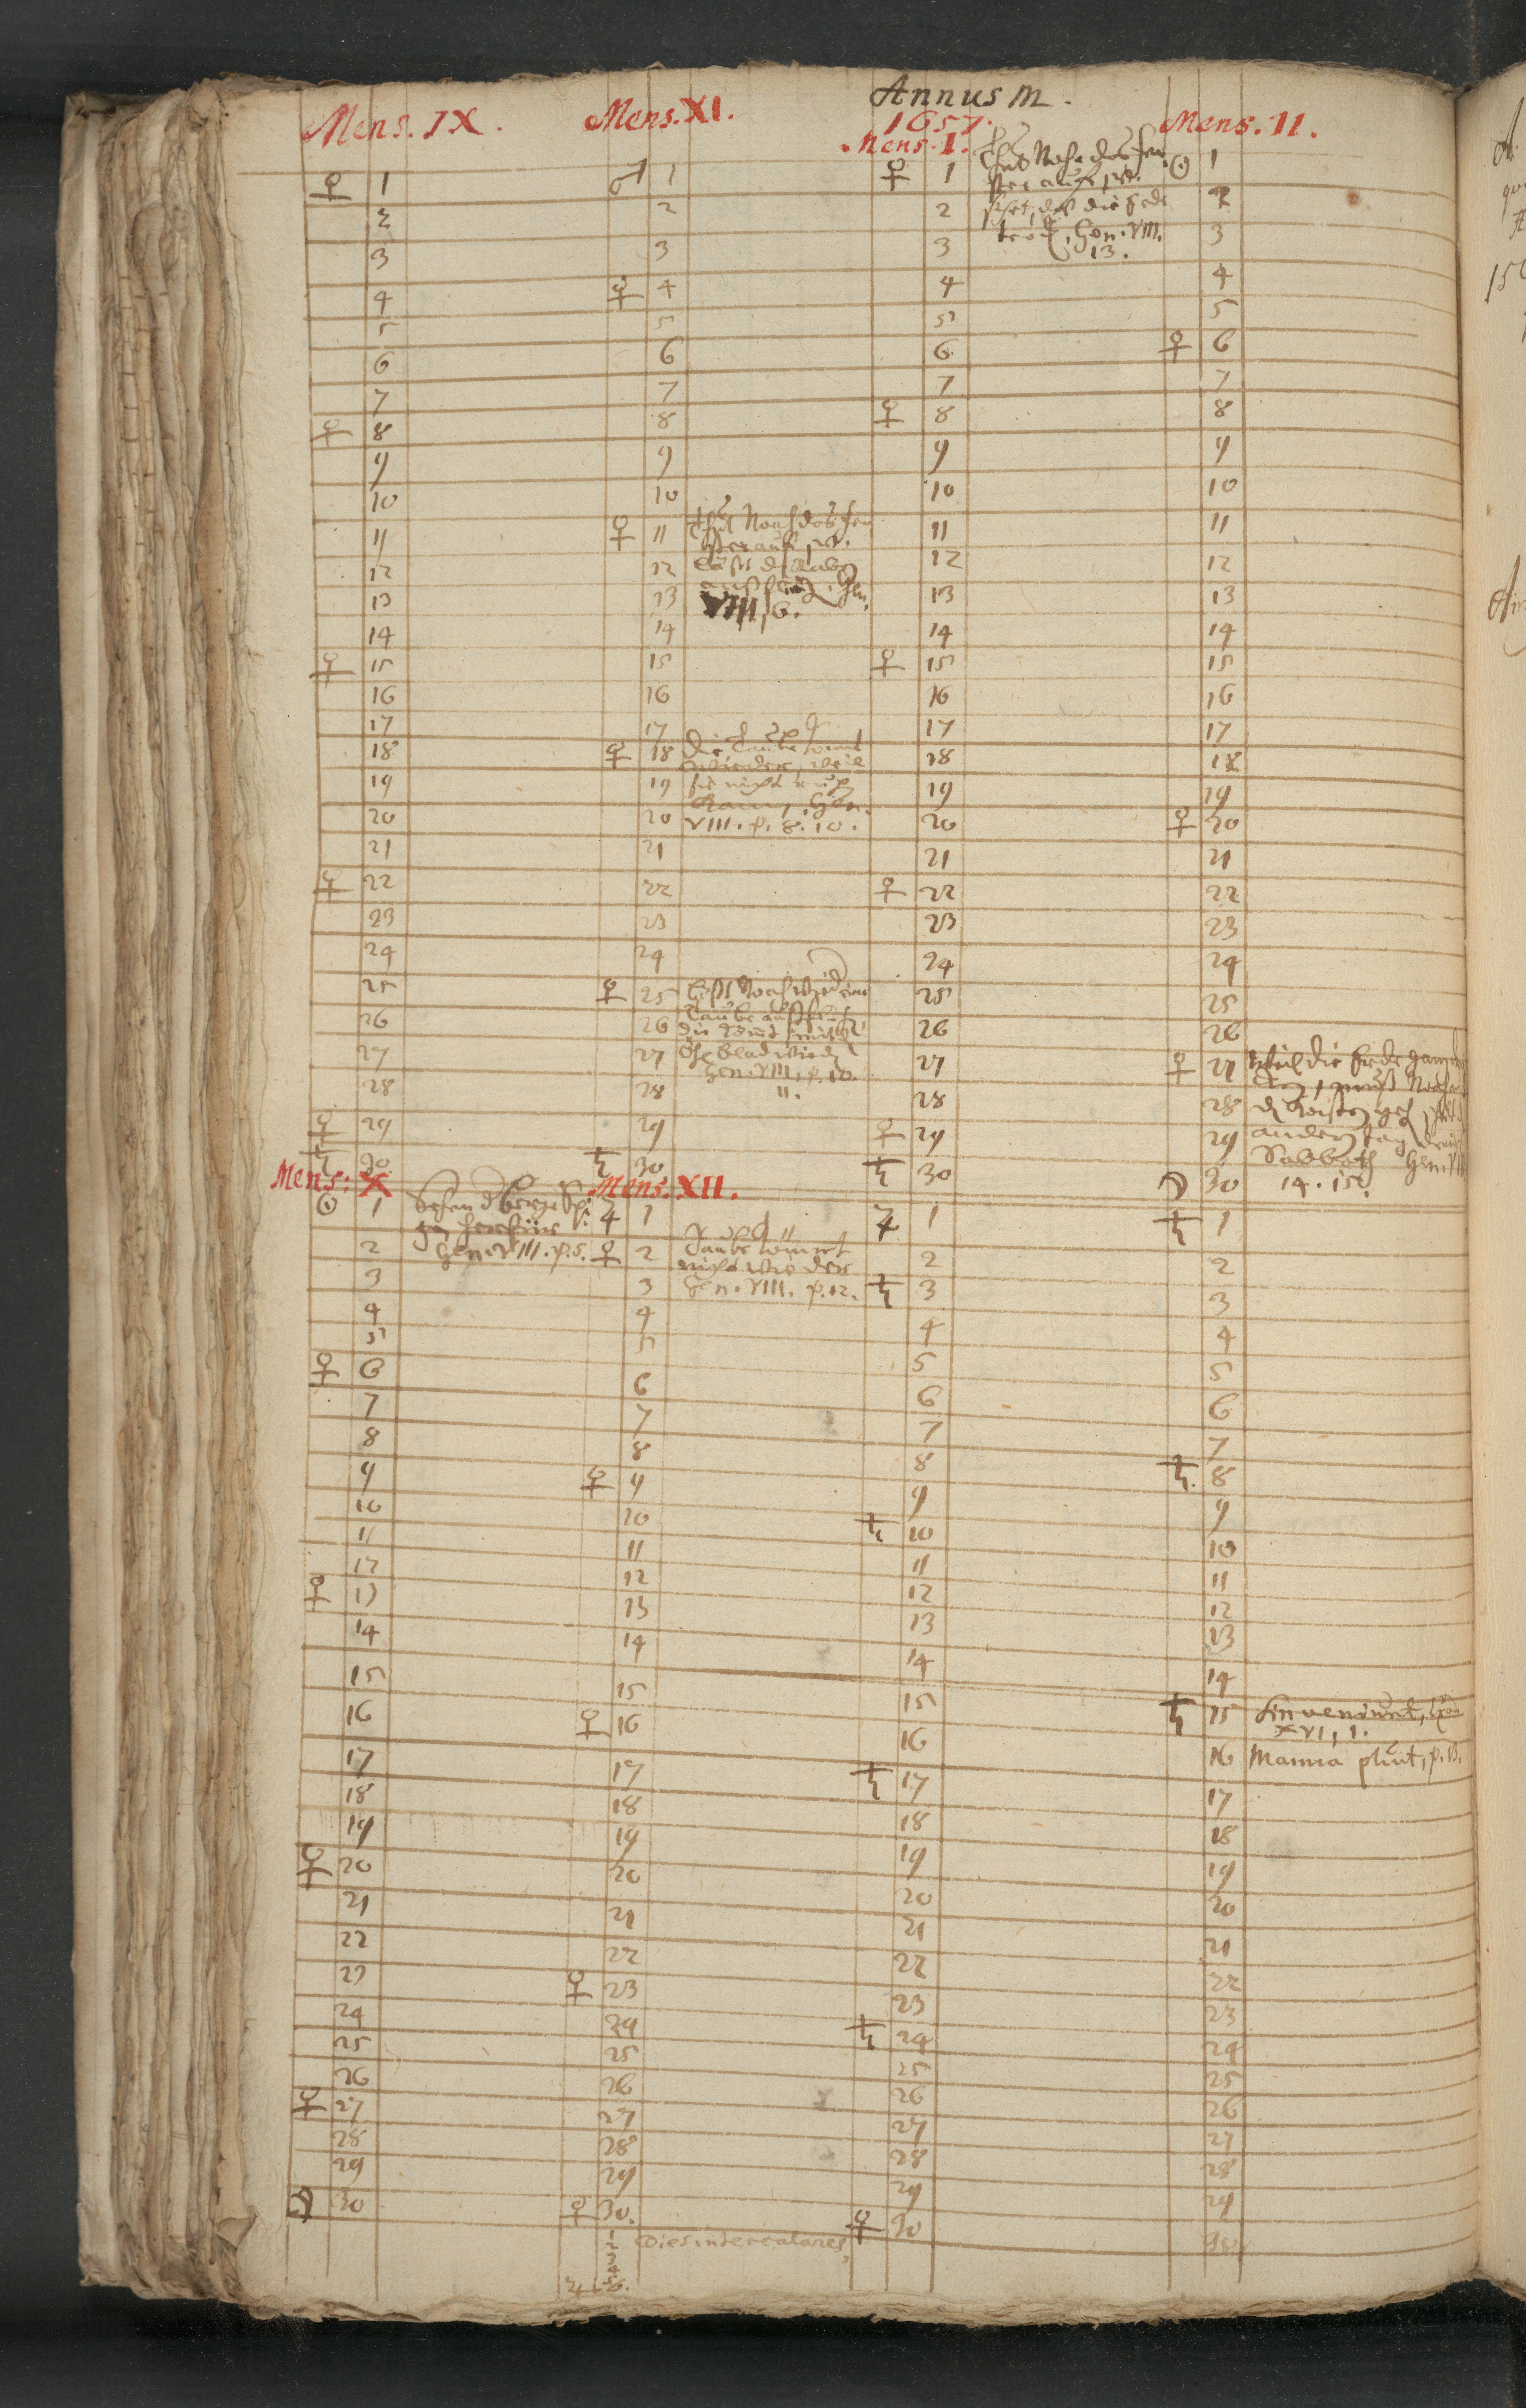 Mens. IX.
♀ 1
2
3
4
5
6
7
♀ 8
9
10
11
12
13
14
♀ 15
16
17
18
19
20
21
♀ 22
23
24
25
26
27
28
♀ 29
♄ 30
Mens: X
☉ 1 Sehen d Berge Spi
tzen herfür
2 Gen. VIII. p. 5.
3
4
5
♀ 6
7
8
9
10
11
12
♀ 13
14
15
16
17
18
19
♀ 20
21
22
23
24
25
26
♀ 27
28
29
☽ 30
Mens. XI.
♂ 1
2
3
♀ 4
5
6
7
8
9
10
♀ 11 Thut Noah das fen
ster auf, vt.
12 läßt d Raben
13 ausfliegen, Gen.
VIII, 6.
14
15
16
17
♀ 18 Die Taube kömt
wieder, weil
19 sie nicht
20 VIII. p. 8. 10.
21
22
23
24
♀ 25 läßt Noah wied eine
26 Taube
die kömt mit
27 Öhl Blad wied
Gen. VIII, p. 10.
28 11.
29
♄ 30
Mens. XII.
♃ 1
♀ 2 Taube kömmt
nicht wieder
3 Gen. VIII. p. 12.
4
5
6
7
8
♀ 9
10
11
12
13
14
15
♀ 16
17
18
19
20
21
22
♀ 23
24
25
26
27
28
29
♀ 30.
1 Dies intercalares,
2
3
4
5
♃ 6.
Annus M.
1657.
Mens. I.
♀ 1 Thut Noha das fen
ster auff, vt.
2 sihet, daß die Erde
3 trock, Gen. VIII.
13.
4
5
6
7
♀ 8
9
10
11
12
13
14
♀ 15
16
17
18
19
20
21
♀ 22
23
24
25
26
27
28
♀ 29
♄ 30
♃ 1
2
♄ 3
4
5
6
7
8
9
♄ 10
11
12
13
14
15
16
♄ 17
18
19
20
21
22
23
♄ 24
25
26
27
28
29
♀ 30
Mens. II.
☉ 1
2
3
4
5
♀ 6
7
8
9
10
11
12
13
14
15
16
17
18
19
♀ 20
21
22
23
24
25
26
♀ 27 Weil die Erde gantz
muß Noah
28 d Kasten
29 andern tag
Sabbath Gen. VIII
☽ 30 14. 15.
♄ 1
2
3
4
5
6
7
♄ 8
9
10
11
12
13
14
♄ 15 Sin veniunt, Exod
XVI, 1.
16 Manna pluit, p. 13.
17
18
19
20
21
22
23
24
25
26
27
28
29
30